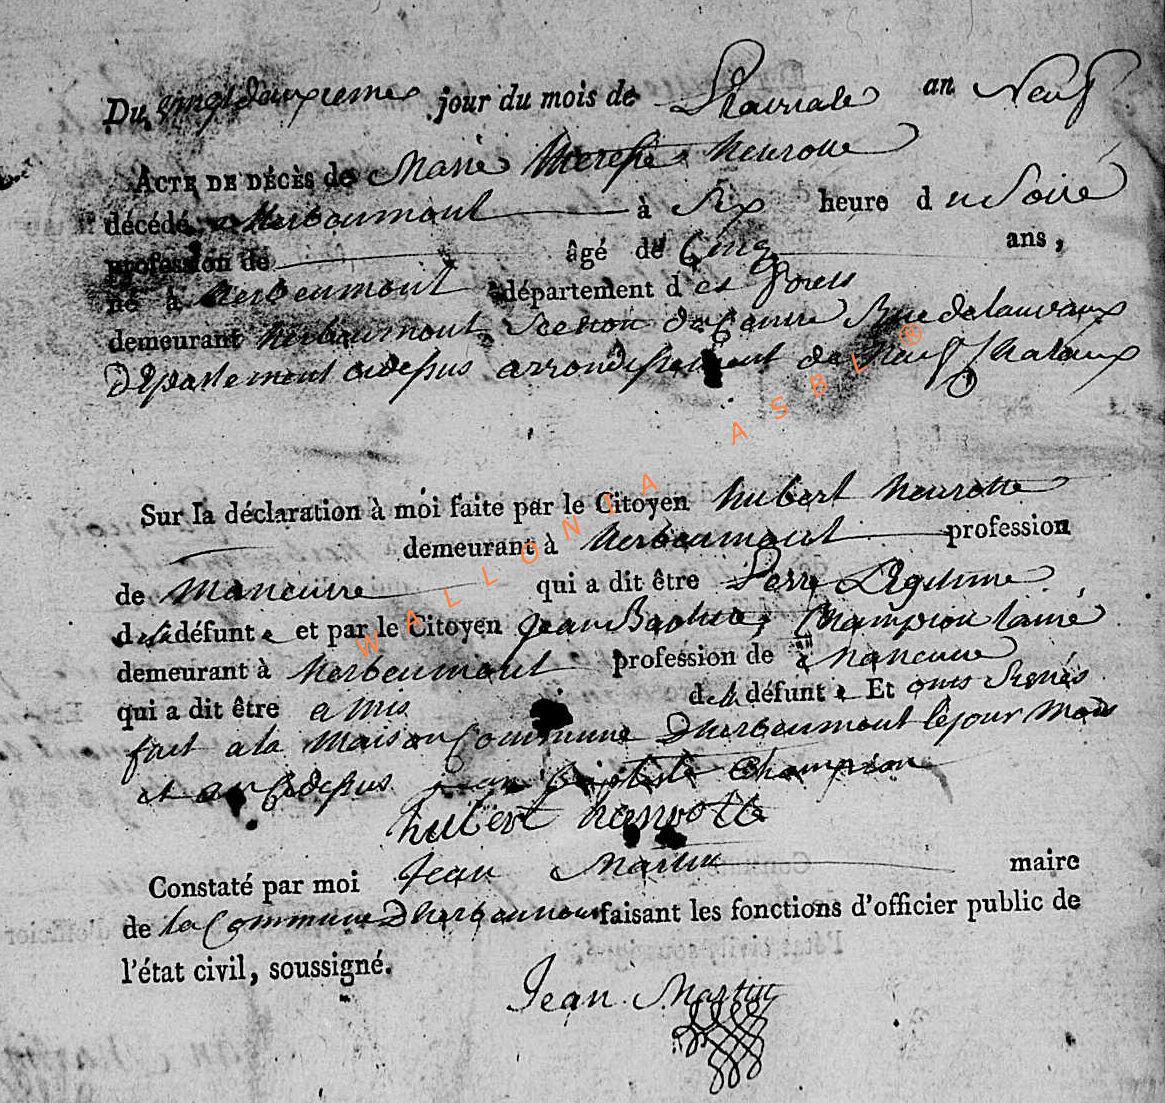 Du vingt deuxiemes jour du mois de Pluviale an Neuf
ACTE DE DÉCÈS de Marie therese henrotte
décédé a herbeumont à Six heure du Soire
profession de âgé de Cinq ans,
né à herbeumont département des forets
demeurant herbeumont Section du Centre Rue de lauvaux
Departement cidessus arrondissement de Neuf Chataux
Sur la déclaration à moi faite par le Citoyen hubert henrotte
demeurant à herbeumont profession
de Maneuvre qui a dit être Perre Legitime
de la défunte et par le Citoyen Jean Baptiste Champion lainé
demeurant à herbeumont profession de Maneuvre
qui a dit être amis de la défunte Et onts Signés
fait a la Maison Commune Dherbeumont le jour Mois
et an Cidessus jean Baptiste Champion
hubert henrotte
Constaté par moi Jean Martin maire
de la Commune Dherbeumont faisant les fonctions d'officier public de
l'état civil, soussigné.
Jean Martin
WALLONIA ASBL ®